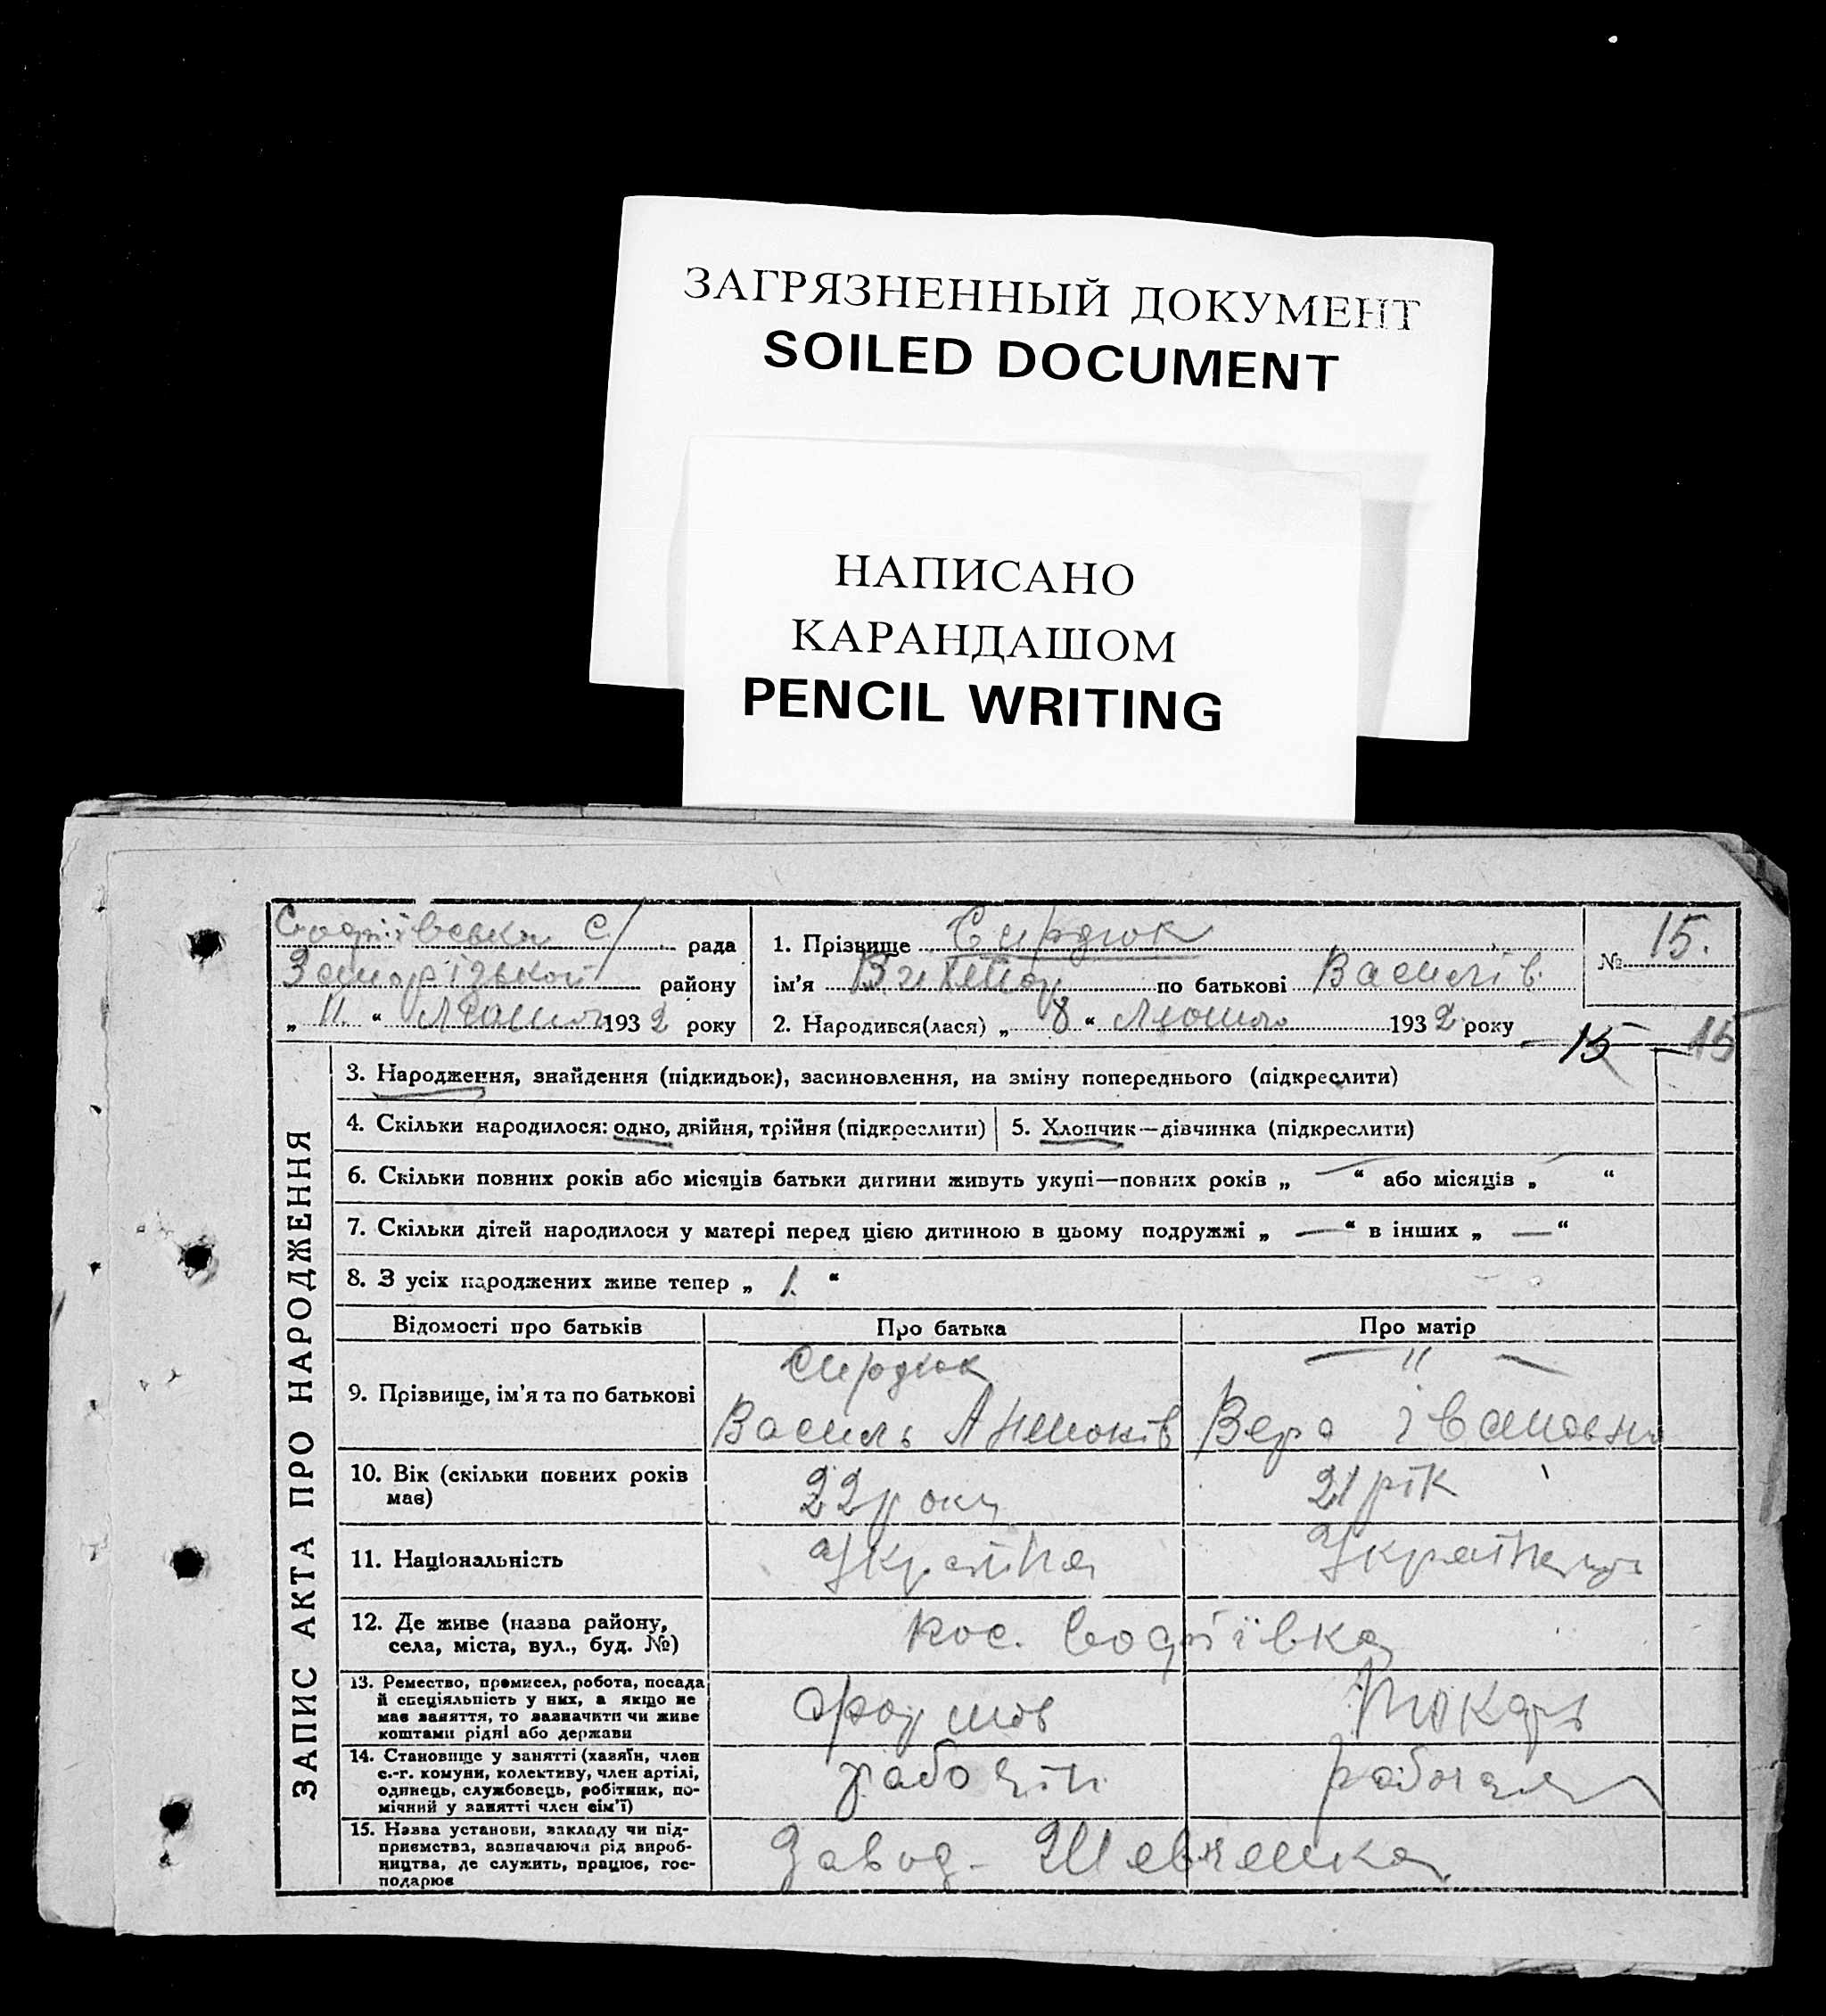 ЗАГРЯЗНЕННЫЙ ДОКУМЕНТ
SOILED DOCUMENT
НАПИСАНО
КАРАНДАШОМ
PENCIL WRITING
Софіївська с/ рада
району
„ 11. “ 1932 року
1. Прізвище Сирдюк
ім’я Виктор по батькові Василів.
2. Народився(лася) „ 8 “ Лютого 1932 року
№ 15.
15 — 15
ЗАПИС АКТА ПРО НАРОДЖЕННЯ
3. Народження, знайдення (підкидьок), засиновлення, на зміну попереднього (підкреслити)
4. Скільки народилося: одно, двійня, трійня (підкреслити)
5. Хлопчик—дівчинка (підкреслити)
6. Скільки повних років або місяців батьки дитини живуть укупі—повних років „ — “ або місяців „ “
7. Скільки дітей народилося у матері перед цією дитиною в цьому подружжі „ — “ в інших „ — “
8. З усіх народжених живе тепер „ 1. “
Відомості про батьків
Про батька
Про матір
9. Прізвище, ім’я та по батькові
Сирдюк
Василь Антонів
— " —
Вера Івановна
10. Вік (скільки повних років
має)
22 роки
21 рік
11. Національність
Україна
Українець
12. Де живе (назва району,
села, міста, вул., буд. №)
Софіївка
13. Ремество, промисел, робота, посада
й спеціяльність у них, а якщо не
має заняття, то зазначити чи живе
коштами рідні або держави
Токарь
14. Становище у занятті (хазяїн, член
с.-г. комуни, колективу, член артілі,
одинець, службовець, робітник, по-
мічний у занятті член сім’ї)
рабочій
рабочая
15. Назва установи, закладу чи під-
приємства, зазначаючи рід вироб-
ництва, де служить, працює, гос-
подарює
Завод - Шевченка